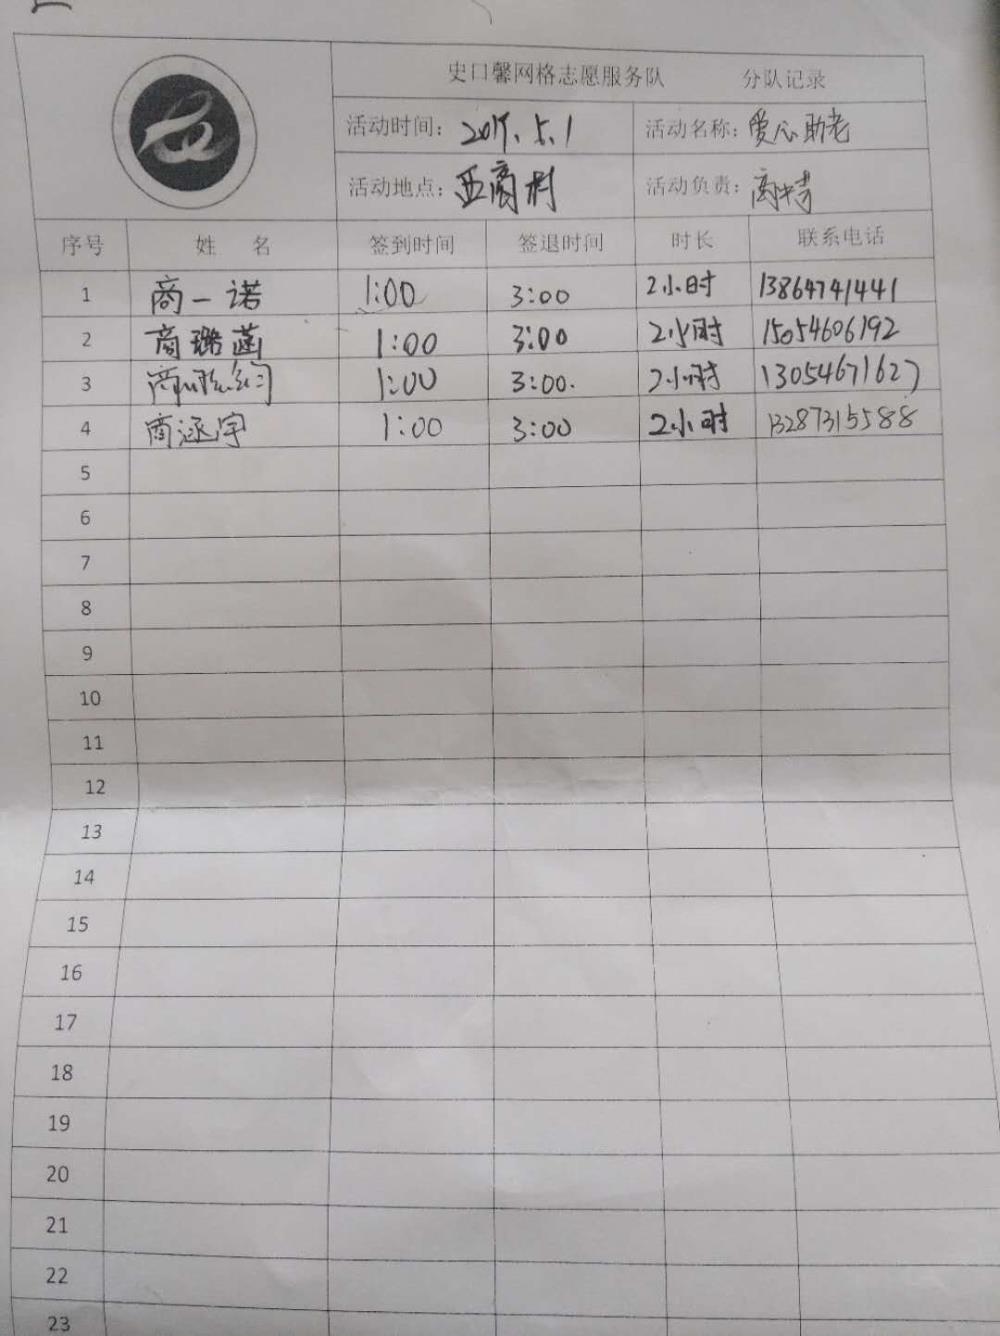 史口馨网格志愿服务队 分队记录
活动时间: 5.1 活动名称: 爱心助老
活动地点: 西商村 活动负责: 商
序号 姓 名 签到时间 签退时间 时长 联系电话
1 商一诺 1:00 3:00 2小时 13864741441
2 商璐菡 1:00 3:00 2小时 15054606192
3 商 1:00 3:00. 2小时 13054671627
4 商 宇 1:00 3:00 2小时 13287315588
5
6
7
8
9
10
11
12
13
14
15
16
17
18
19
20
21
22
23